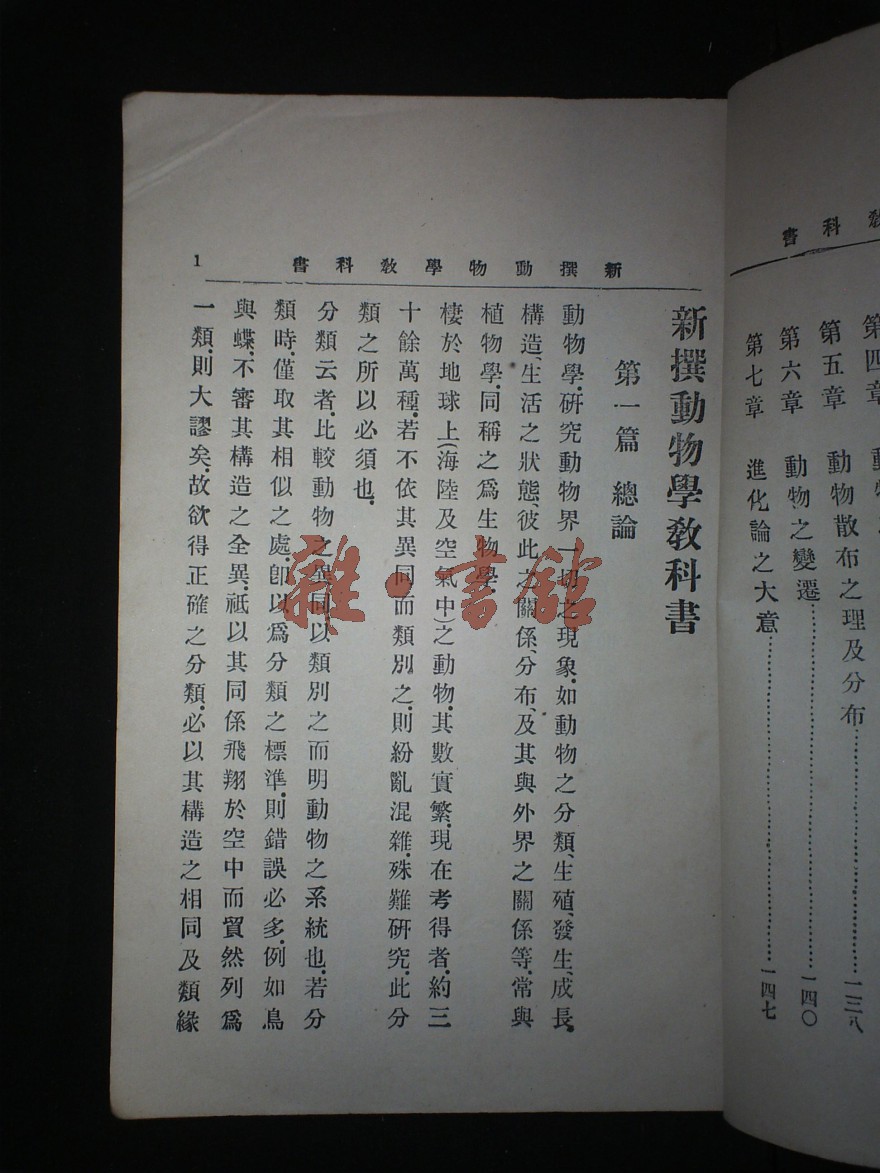 敎科書
第四章 動物
第五章 動物散布之理及分布……一三八
第六章 動物之變遷……一四〇
第七章 進化論之大意……一四七
新撰動物學敎科書 1
新撰動物學敎科書
第一篇 總論
動物學、研究動物界一切之現象、如動物之分類、生殖、發生、成長、
構造、生活之狀態、彼此之關係、分布、及其與外界之關係等、常與
植物學、同稱之爲生物學、
棲於地球上(海陸及空氣中)之動物、其數實繁、現在考得者、約三
十餘萬種、若不依其異同而類別之、則紛亂混雜、殊難研究、此分
類之所以必須也、
分類云者、比較動物之異同以類別之而明動物之系統也、若分
類時、僅取其相似之處、卽以爲分類之標準、則錯誤必多、例如鳥
與蝶、不審其構造之全異、祇以其同係飛翔於空中而貿然列爲
一類、則大謬矣、故欲得正確之分類、必以其構造之相同及類緣
雜·書館